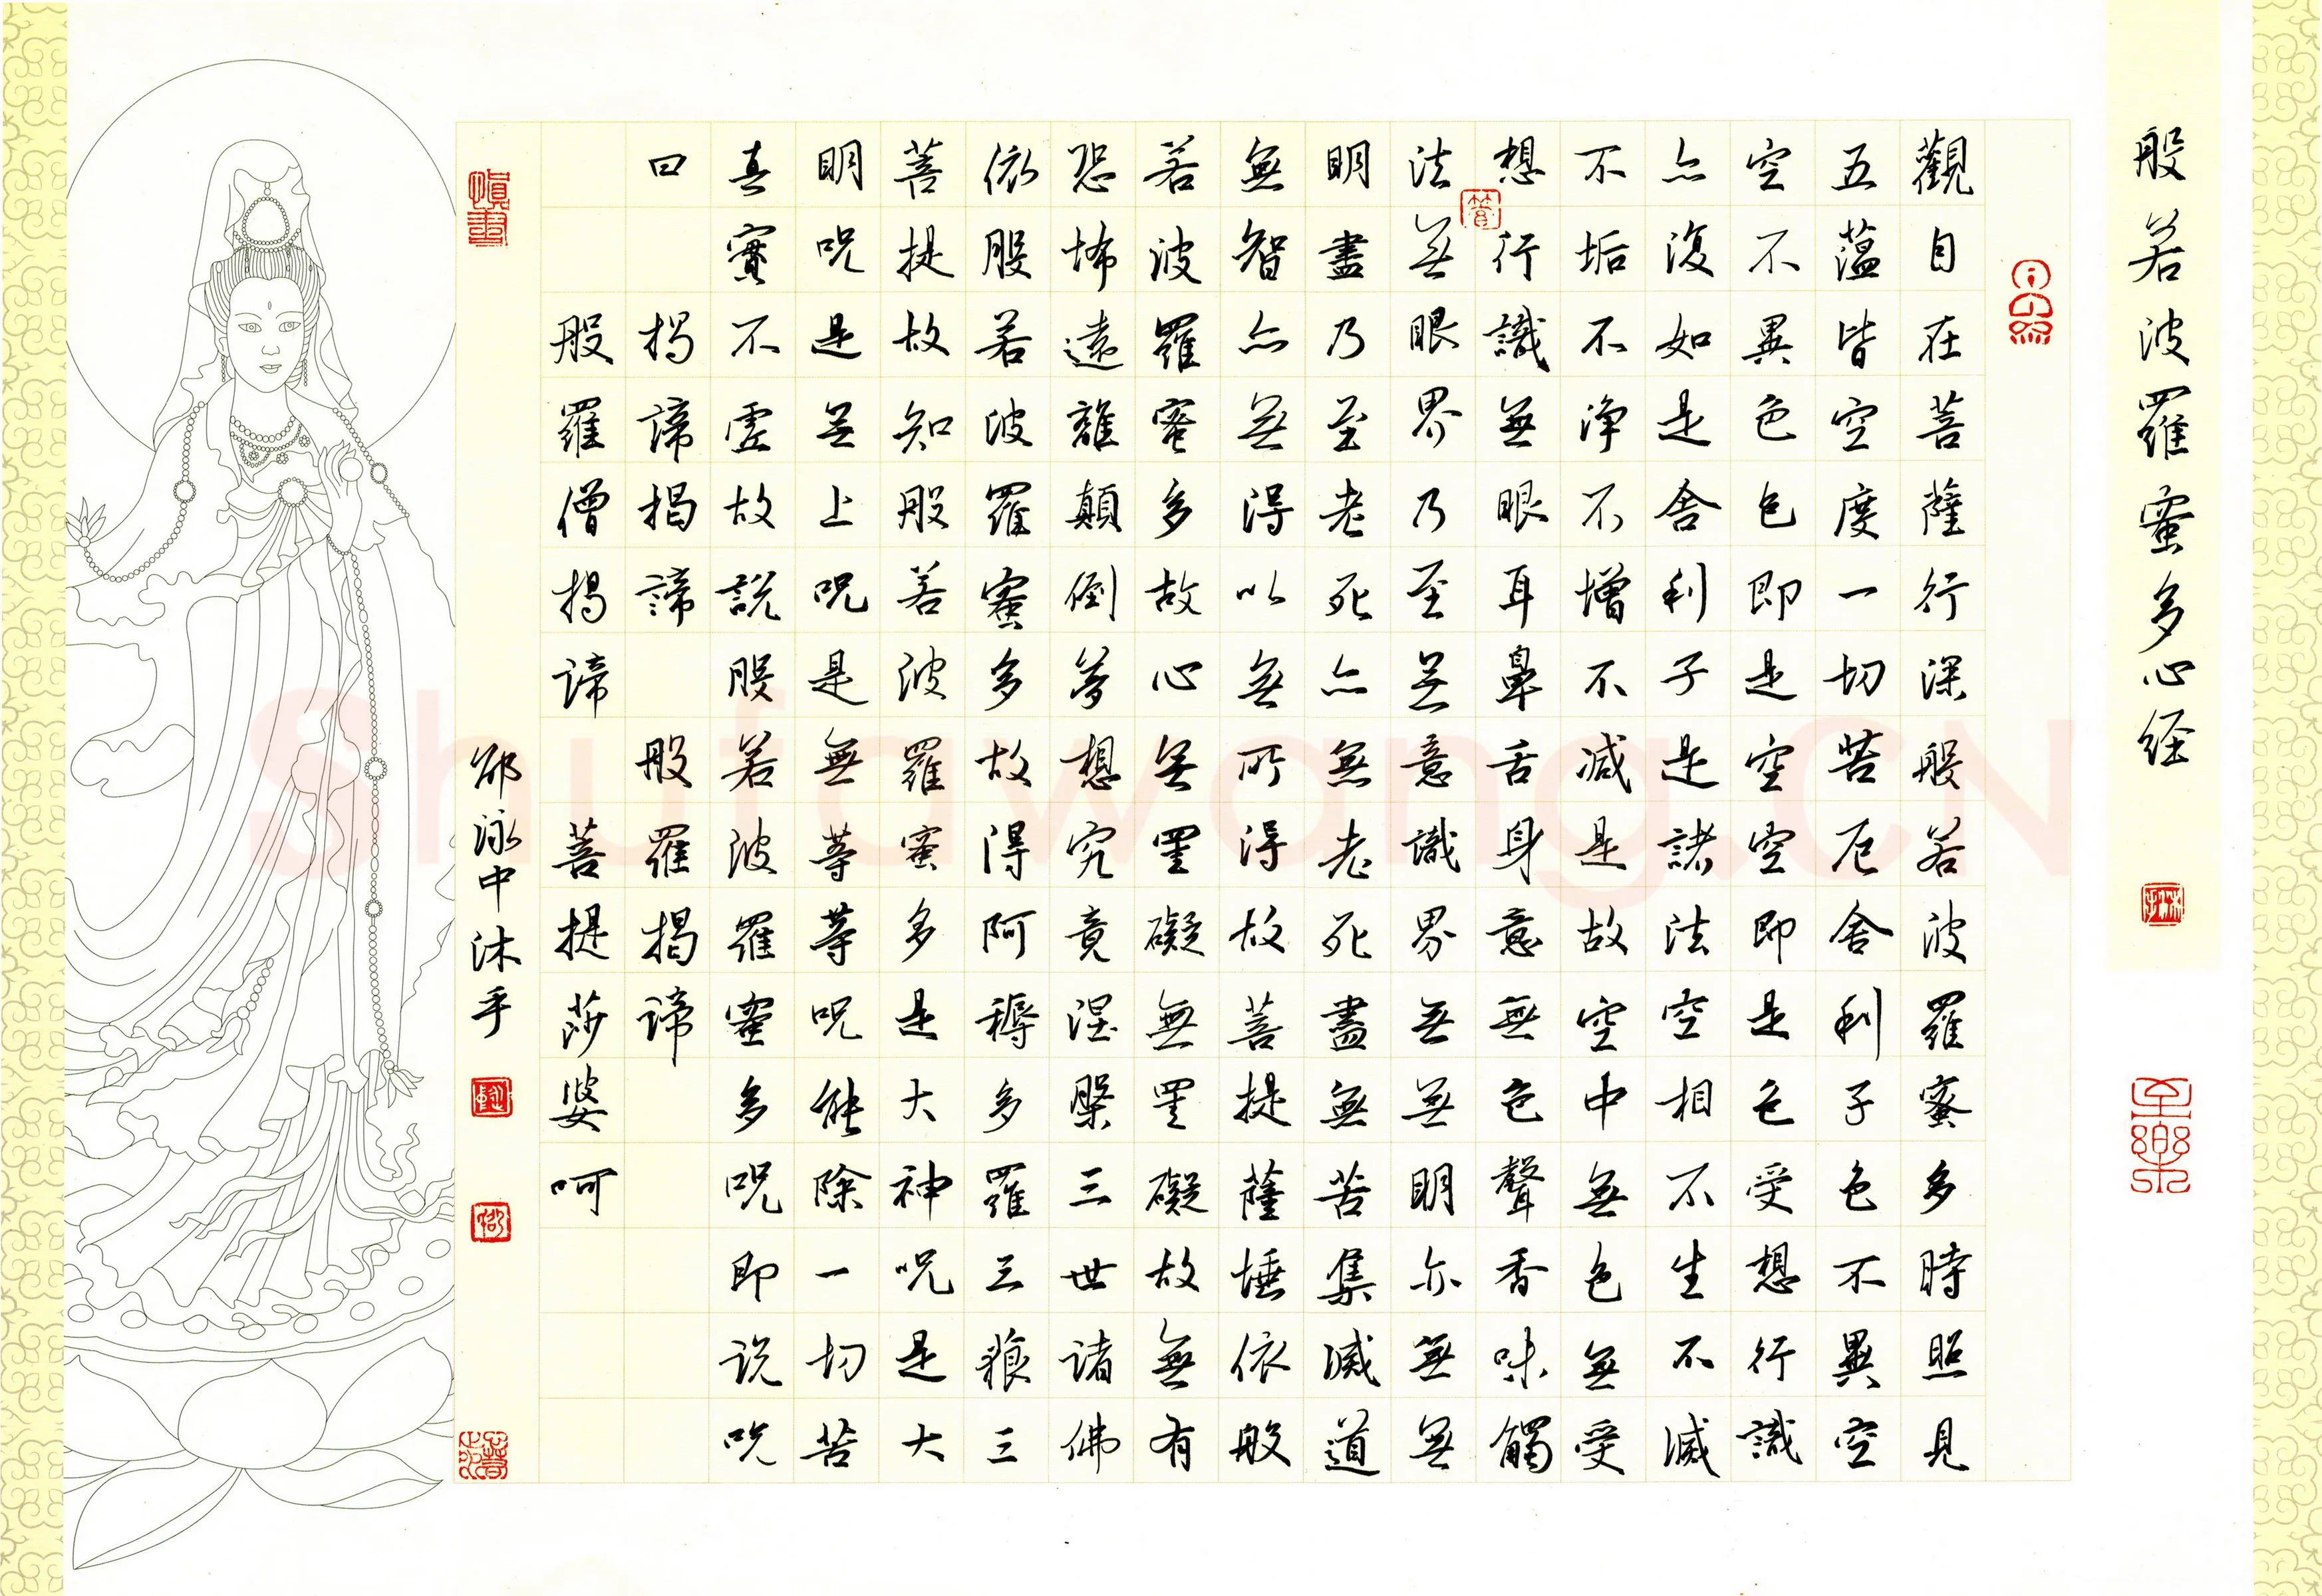 般若波羅蜜多心经
至樂
觀自在菩薩行深般若波羅蜜多時照見
五蕴皆空度一切苦厄舍利子色不異空
空不異色色即是空空即是色受想行識
亦復如是舍利子是諸法空相不生不滅
不垢不净不增不减是故空中無色無受
想行識無眼耳鼻舌身意無色聲香味觸
法無眼界乃至無意識界無無明亦無無
明盡乃至老死亦無老死盡無苦集滅道
無智亦無得以無所得故菩提薩埵依般
若波羅蜜多故心無罣礙無罣礙故無有
恐怖遠離顛倒夢想究竟涅槃三世諸佛
依般若波羅蜜多故得阿耨多羅三藐三
菩提故知般若波羅蜜多是大神咒是大
明咒是無上咒是無等等咒能除一切苦
真實不虛故說般若波羅蜜多咒即说咒
曰 揭諦揭諦 般羅揭諦
般羅僧揭諦 菩提莎婆呵
慎書
邵泳中沐手
Shufawang.CN